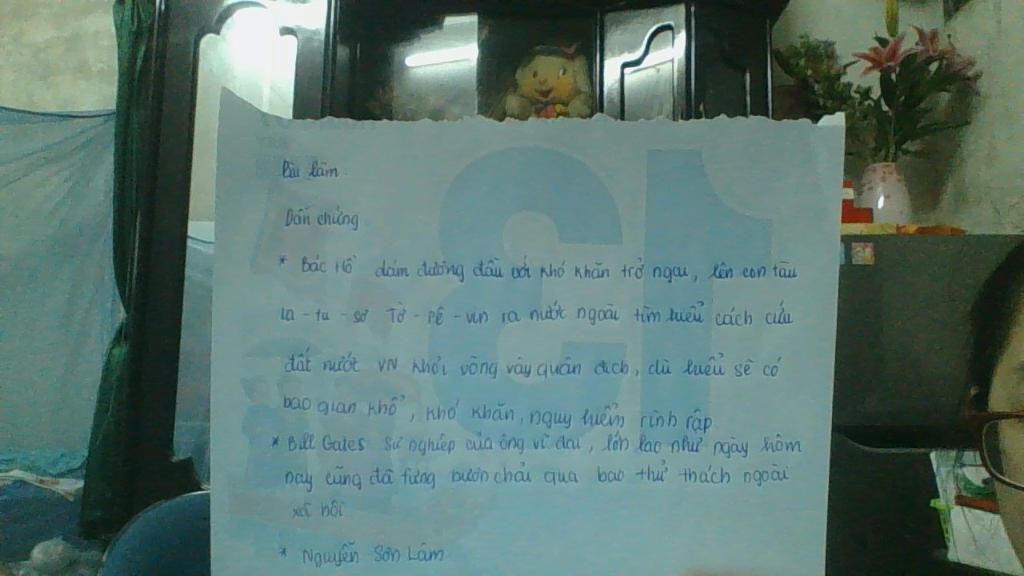 Bài làm.
Dẫn chứng
* Bác Hồ dám đương đầu với khó khăn trở ngại, lên con tàu
La-tu-sơ Tờ-rê-vin ra nước ngoài tìm hiểu cách cứu
đất nước VN khỏi vòng vây quân địch, dù hiểu sẽ có
bao gian khổ, khó khăn, nguy hiểm rình rập
* Bill Gates sự nghiệp của ông vĩ đại, lớn lao như ngày hôm
nay cũng đã từng bươn chải qua bao thử thách ngoài
xã hội
* Nguyễn Sơn Lâm
13